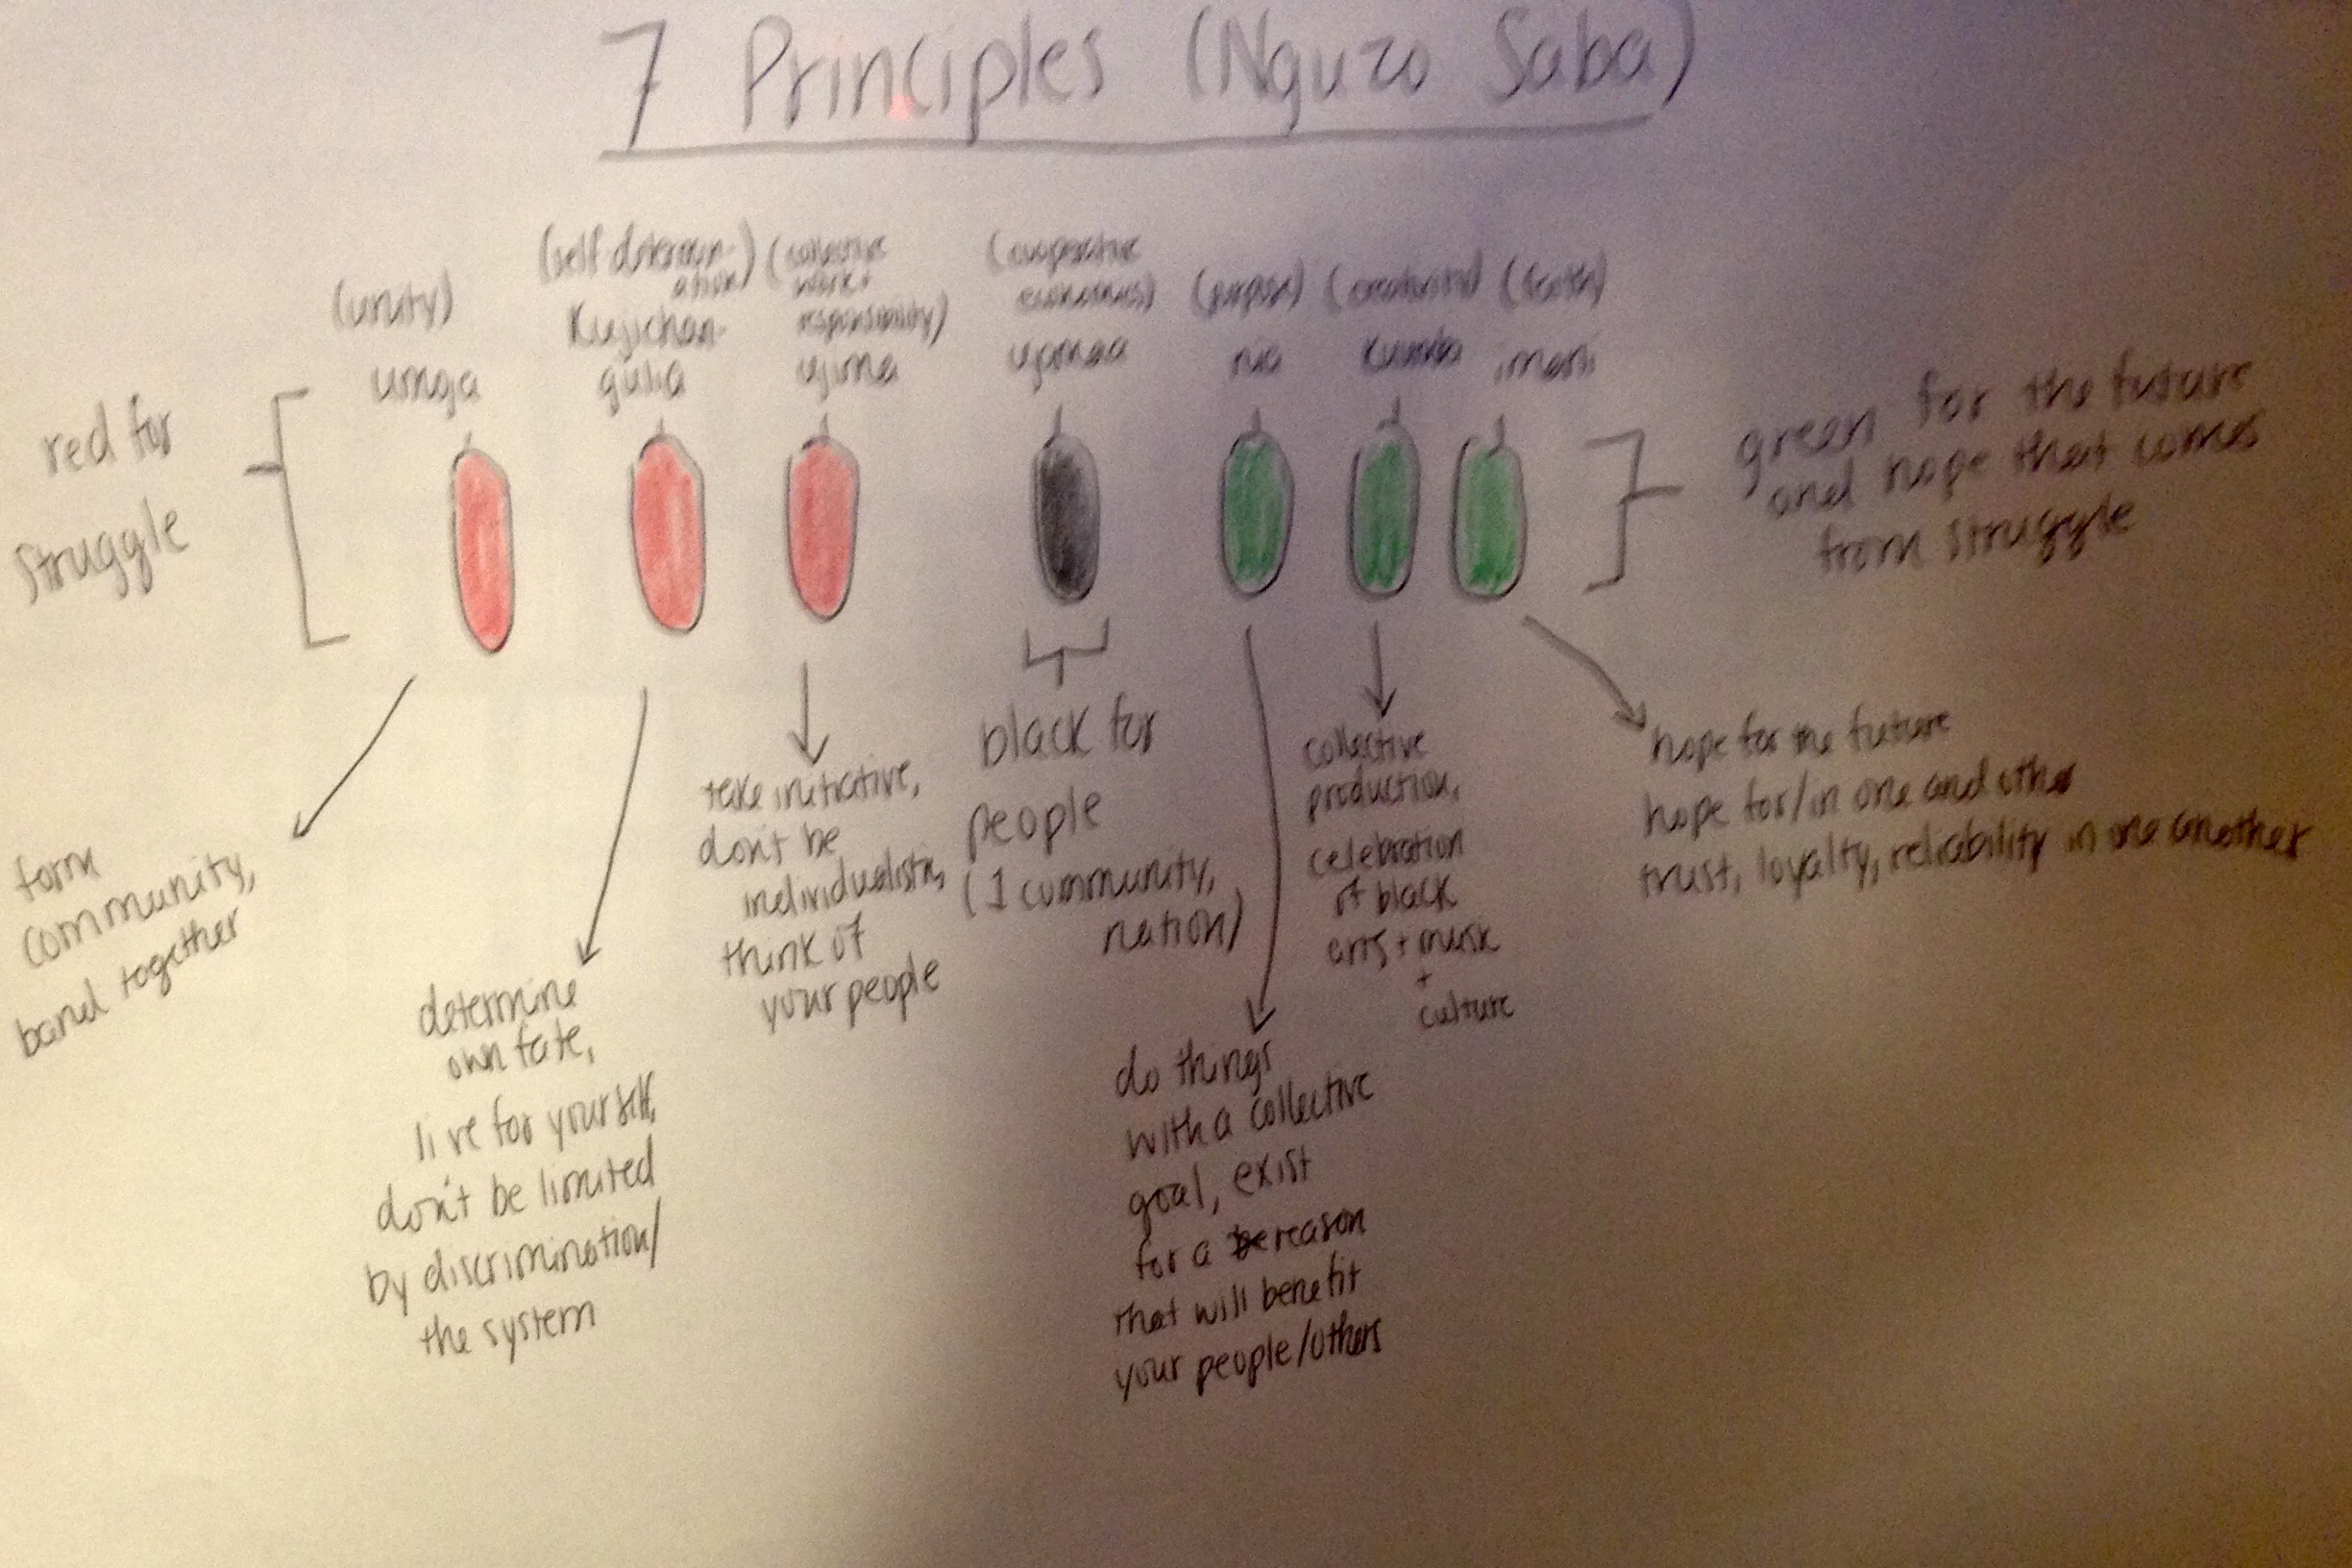 7 Principles (Nguzo Saba)
(unity)
umoja
(self determin-
ation)
Kujichan-
gulia
(collective
work +
responsibility)
ujima
(cooperative
economics)
ujamaa
(purpose)
nia
(creativity)
Kuumba
(faith)
imani
red for
struggle
green for the future
and hope that comes
from struggle
form
community,
band together
determine
own fate,
live for yourself,
don't be limited
by discrimination/
the system
take initiative,
don't be
individualistic,
think of
your people
black for
people
(1 community,
nation)
do things
with a collective
goal, exist
for a reason
that will benefit
your people/others
collective
production,
celebration
of black
arts + music
+
culture
hope for the future
hope for/in one and other
trust, loyalty, reliability in one another